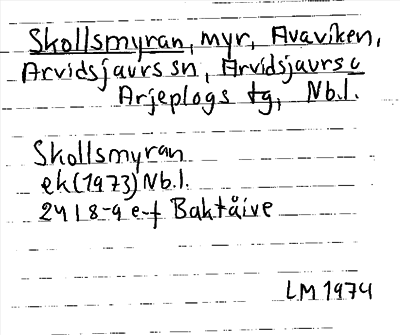 Skollsmyran, myr, Avaviken,
Arvidsjaurs sn, Arvidsjaurs o
Arjeplogs tg, Nb.l.
Skollsmyran
ek(1973) Nb.l.
24 I 8-9 e-f Baktåive
LM 1974